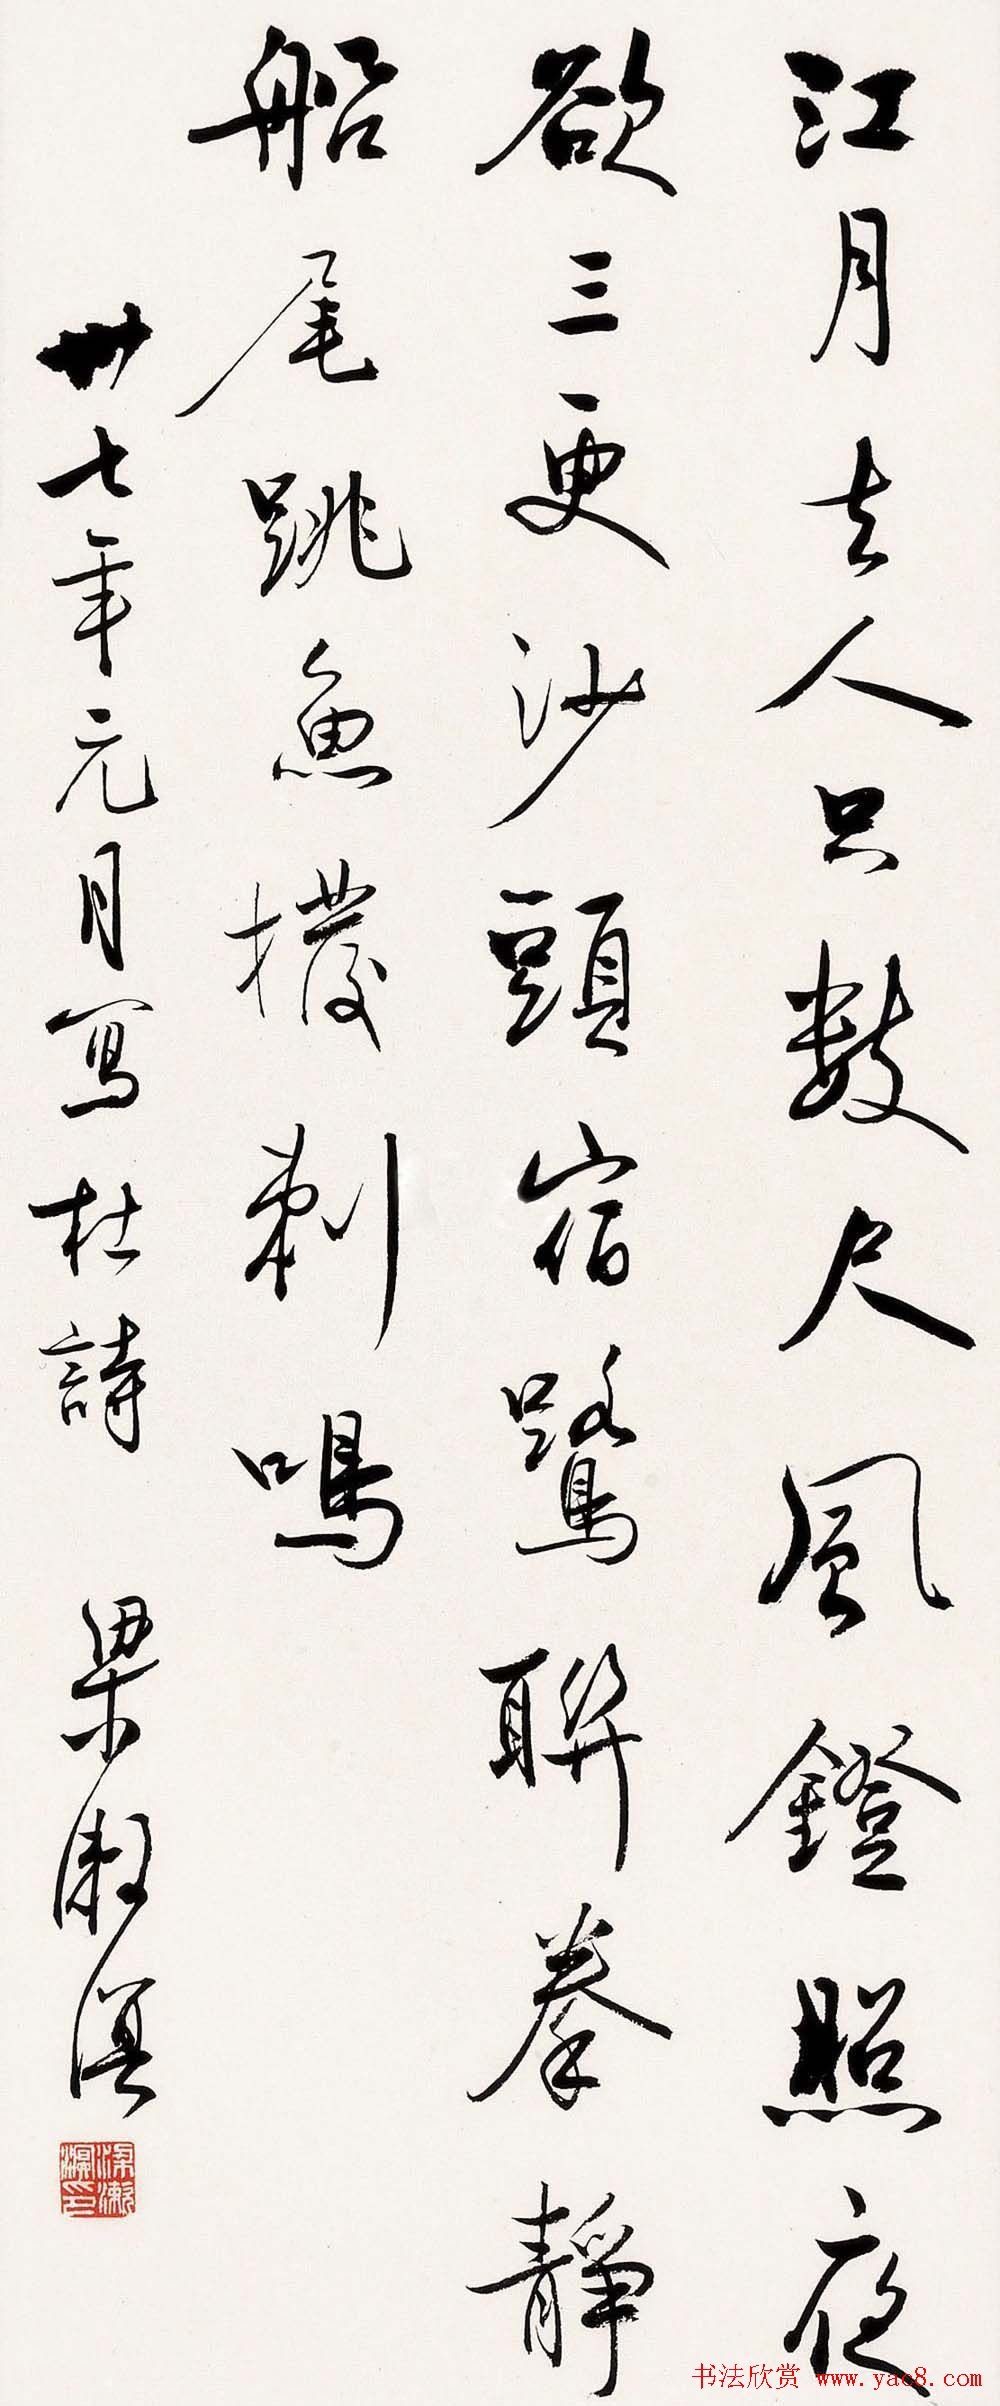 江月去人只數尺風鐙照夜
欲三更沙頭宿鷺聯拳靜
船尾跳魚撥刺鳴
卅七年元月寫杜詩 梁漱溟
梁漱溟印
书法欣赏 www.yac8.com